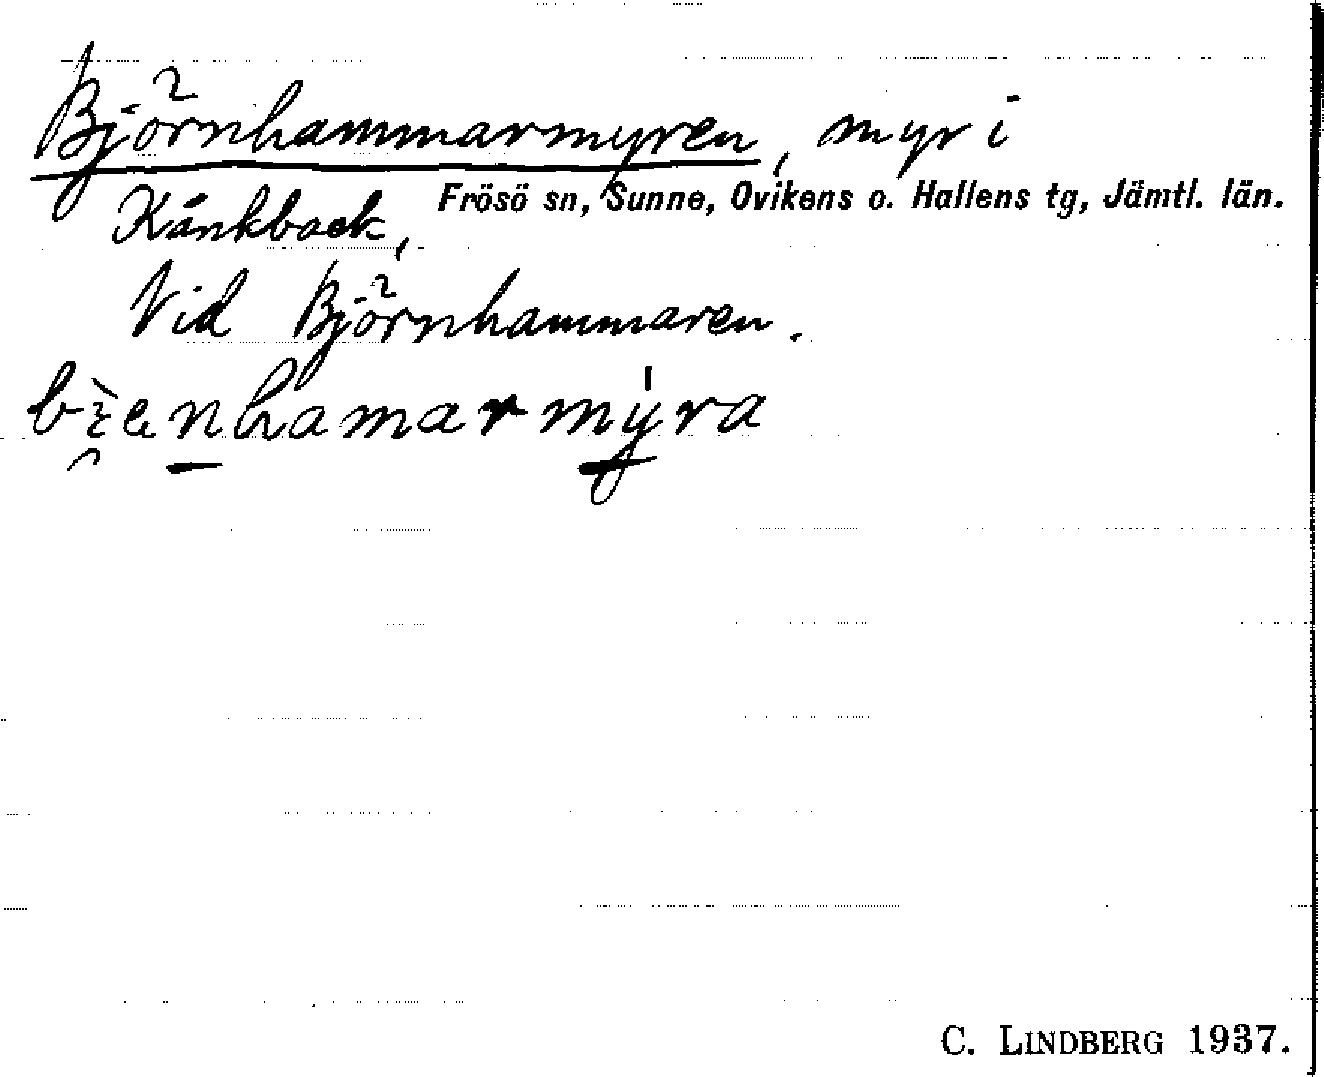 Björnhammarmyren, myr i
Kånkback, Frösö sn, Sunne, Ovikens o. Hallens tg, Jämtl. län.
Vid Björnhammaren.
C. LINDBERG 1937.